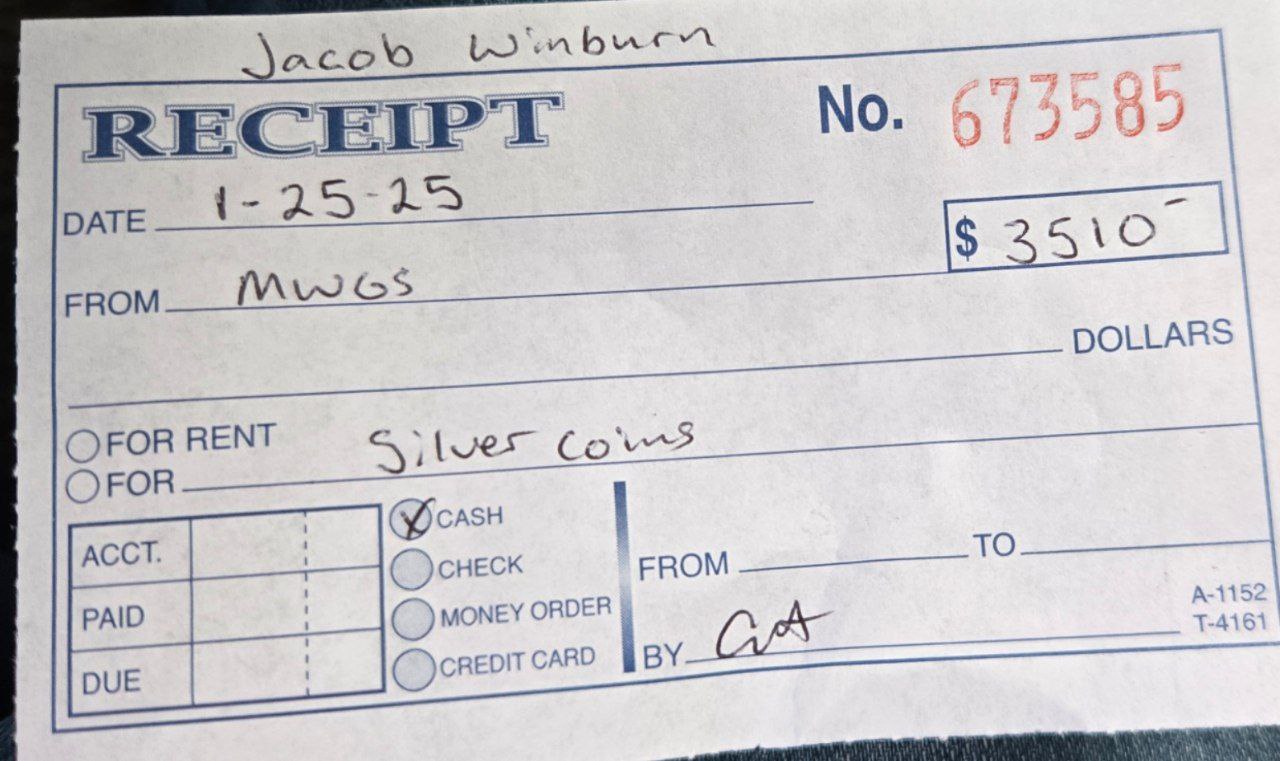 Jacob Winburn
RECEIPT No. 673585
DATE 1-25-25
$ 3510-
FROM MWGS
DOLLARS
FOR RENT
FOR Silver coins
ACCT.
PAID
DUE
CASH
CHECK
MONEY ORDER
CREDIT CARD
FROM TO
BY
A-1152
T-4161